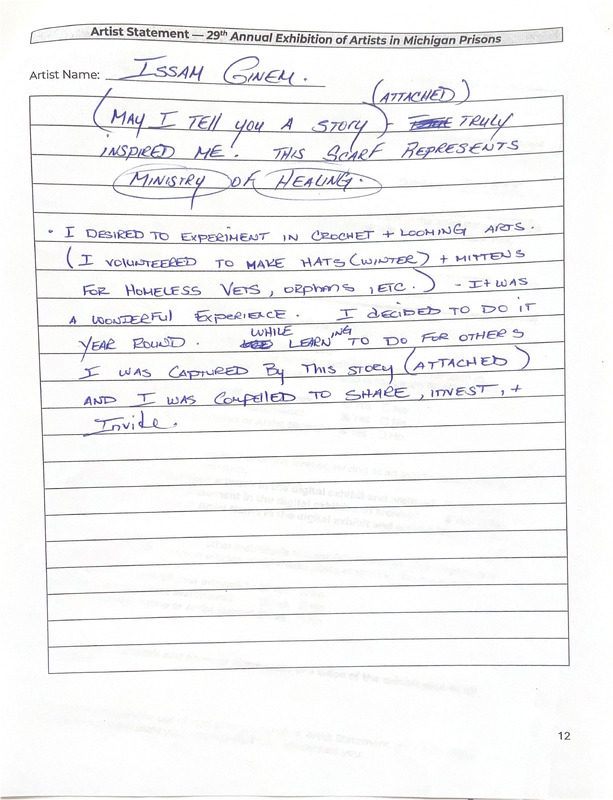 Artist Statement — 29th Annual Exhibition of Artists in Michigan Prisons
Artist Name: ISSAM GINEM.
(ATTACHED)
(MAY I TELL YOU A STORY) - TRULY
INSPIRED ME. THIS SCARF REPRESENTS
MINISTRY OF HEALING.
• I DESIRED TO EXPERIMENT IN CROCHET + LOOMING ARTS.
(I VOLUNTEERED TO MAKE HATS (WINTER) + MITTENS
FOR HOMELESS VETS, ORPHANS, ETC.) - IT WAS
A WONDERFUL EXPERIENCE. I DECIDED TO DO IT
YEAR ROUND. WHILE LEARNING TO DO FOR OTHERS
I WAS CAPTURED BY THIS STORY (ATTACHED)
AND I WAS COMPELLED TO SHARE, INVEST, +
Invite.
12